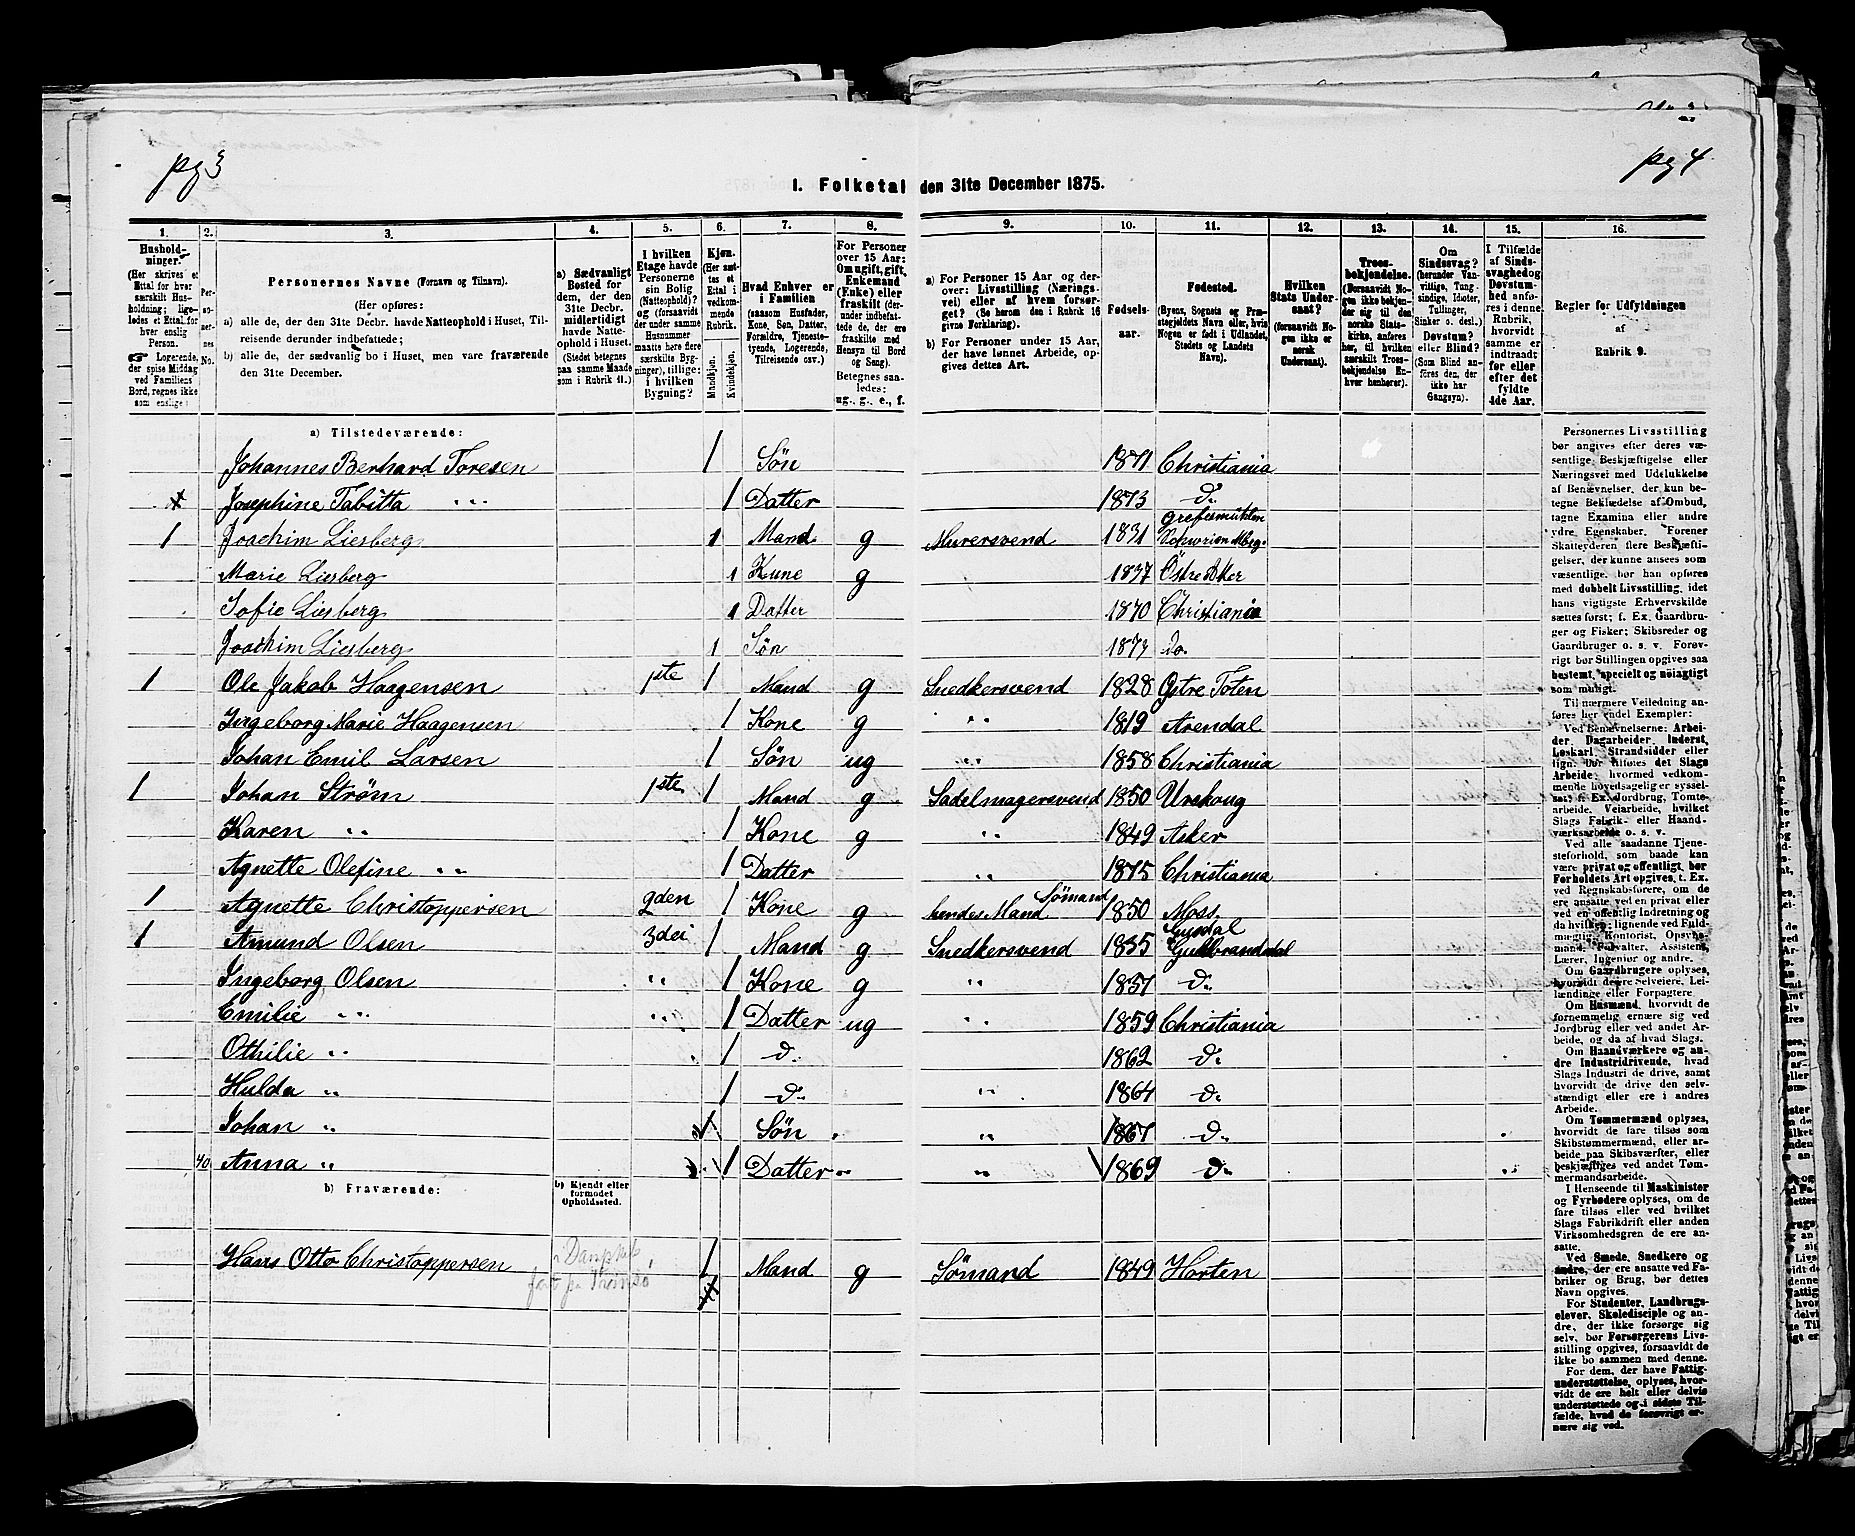 pg 3
pg 4
1. Folketal den 31te December 1875.
1. 2. 3. 4. 5. 6. 7. 8. 9. 10. 11. 12. 13. 14. 15. 16.
Husholdninger.
(Her skrives et Ettal for hver særskilt Husholdning; ligeledes et Ettal for hver enslig Person.
Logerende, der spise Middag ved Familiens Bord, regnes ikke som enslige)
Personernes No.
Personernes Navne (Fornavn og Tilnavn).
(Her opføres:
a) alle de, der den 31te Decbr. havde Natteophold i Huset, Tilreisende derunder indbefattede;
b) alle de, der sædvanlig bo i Huset, men vare fraværende den 31te December.
a) Sædvanligt Bosted for dem, der den 31te Decbr. midlertidigt havde Natteophold i Huset.
(Stedet betegnes paa samme Maade som i Rubrik 11.)
I hvilken Etage havde Personerne sin Bolig (Natteophold)? og (forsaavidt der under samme Husnummer maatte høre flere særskilte Bygninger), tillige: i hvilken Bygning?
Kjøn.
(Her sættes et Ettal i vedkommende Rubrik.
Mandkjøn.
Kvindekjøn.
Hvad Enhver er i Familien
(saasom Husfader, Kone, Søn, Datter, Forældre, Tjenestetyende, Logerende, Tilreisende osv.)
For Personer over 15 Aar: Om ugift, gift, Enkemand (Enke) eller fraskilt (derunder indbefattede de, der ere fraskilte med Hensyn til Bord og Seng).
Betegnes saaledes: ug., g., e., f.
a) For Personer 15 Aar og derover: Livsstilling (Næringsvei) eller af hvem forsørget? (Se herom den i Rubrik 16 givne Forklaring).
b) For Personer under 15 Aar, der have lønnet Arbeide, opgives dettes Art.
Fødselsaar.
Fødested.
(Byens, Sognets og Præstegjeldets Navn eller, hvis Nogen er født i Udlandet, Stedets og Landets Navn).
Hvilken Stats Undersaat?
(forsaavidt Nogen ikke er norsk Undersaat).
Troesbekjendelse.
(Forsaavidt Nogen ikke bekjender sig til den norske Statskirke, anføres her, til hvilken særskilt Troesbekjendelse Enhver henhører).
Om Sindssvag? (herunder Vanvittige, Tungsindige, Idioter, Tullinger, Sinker o. desl.) Døvstum? eller Blind? (Som Blind anføres den, der ikke har Gangsyn).
I Tilfælde af Sindssvaghed og Døvstumhed anføres i denne Rubrik, hvorvidt samme er indtraadt før eller efter det fyldte 4de Aar.
Regler for Udfyldningen af Rubrik 9.
a) Tilstedeværende:
Johannes Berhard Toresen 1 Søn 1871 Christiania
x Josephine Tabitta " 1 Datter 1873 do
1 Joachim Liesberg 1 Mand g Murersvend 1831 Grefesmühlen Schwerien Mbg.
Marie Liesberg 1 Kune g 1837 Östre Aker
Sofie Liesberg 1 Datter 1870 Christiania
Joachim Liesberg 1 Søn 1873 do.
1 Ole Jakob Haagensen 1ste 1 Mand g Snedkersvend 1828 Østre Toten
Ingeborg Marie Haagensen 1 Kone g " 1819 Arendal
Johan Emil Larsen 1 Søn ug " 1858 Christiania
1 Johan Strøm 1ste 1 Mand g Sadelmagersvend 1850 Urskoug
Karen " 1 Kone g " 1849 Asker
Agnette Olefine " 1 Datter " 1875 Christiania
1 Agnette Christoppersen 2den 1 Kone g hendes Mand Sømand 1850 Moss.
1 Amund Olsen 3dei 1 Mand g Snedkersvend 1835 Gusdal Gulbrandsdal
Ingeborg Olsen " 1 Kone g " 1837 do
Emilie " " 1 Datter ug " 1859 Christiania
Othilie " 1 do 1862 do
Hulda " 1 do " 1864 do
Johan " 1 Søn " 1867 do
40 Anna " 1 Datter " 1869 do
b) Fraværende:
b) Kjendt eller formodet Opholdssted.
Hans Otto Christoppersen 1 Mand g Sømand 1849 Horten
Personernes Livsstilling
bør angives efter deres væsentlige Beskjæftigelse eller Næringsvei med Udelukkelse af Benævnelser, der kun betegne Beklædelse af Ombud, tagne Examina eller andre ydre Egenskaber. Forener Skatteyderen flere Beskjæftigelser, der kunne ansees som væsentlige, bør han opføres med dobbelt Livsstilling, idet hans vigtigste Erhvervskilde sættes først; f. Ex. Gaardbruger og Fisker; Skibsreder og Gaardbruger o. s. v. Forøvrigt bør Stillingen opgives saa bestemt, specielt og nøiagtigt som muligt.
Til nærmere Veiledning anføres her endel Exempler:
Ved Benævnelserne: Arbeider, Dagarbeider, Inderst, Løskarl, Strandsidder eller lign. bør tilføies det Slags Arbeide, hvormed vedkommende hovedsagelig er sysselsat; f. Ex. Jordbrug, Tomtearbeide, Veiarbeide, hvilket Slags Fabrik- eller Haandværksarbeide o. s. v.
Ved alle saadanne Tjenesteforhold, som baade kan være privat og offentligt, bør Forholdets Art opgives, t. Ex. ved Regnskabsførere, om de ere ansatte ved en privat eller ved en offentlig Indretning og da hvilken; lignende ved Fuldmægtig, Kontorist, Opsynsmand, Forvalter, Assistent, Lærer, Ingeniør og andre.
Om Gaardbrugere oplyses, hvorvidt de ere Selveiere, Leilændinge eller Forpagtere.
Om Husmænd, hvorvidt de fornemmelig ernære sig ved Jordbrug eller ved andet Arbeide, og da af hvad Slags.
Om Haandværkere og andre Industridrivende, hvad Slags Industri de drive, samt hvorvidt de drive den selvstændigt eller ere i andres Arbeide.
Om Tømmermænd oplyses, hvorvidt de fare tilsøs som Skibstømmermænd, eller arbeide paa Skibsværfter, eller beskjæftiges ved andet Tømmermandsarbeide.
I Henseende til Maskinister og Fyrbødere oplyses, om de fare tilsøs eller ved hvilket Slags Fabrikdrift eller anden Virksomhedsgren de ere ansatte.
Ved Smede, Snedkere og andre, der ere ansatte ved Fabriker og Brug, bør dettes Navn opgives.
For Studenter, Landbrugselever, Skoledisciple og andre, der ikke forsørge sig selv, bør Forsørgerens Livsstilling opgives, forsaavidt de ikke bo sammen med denne.
For dem, der have Fattigunderstøttelse, oplyses, hvorvidt de ere helt eller delvis understøttede og i sidste Tilfælde, hvad de forøvrigt ernære sig ved.